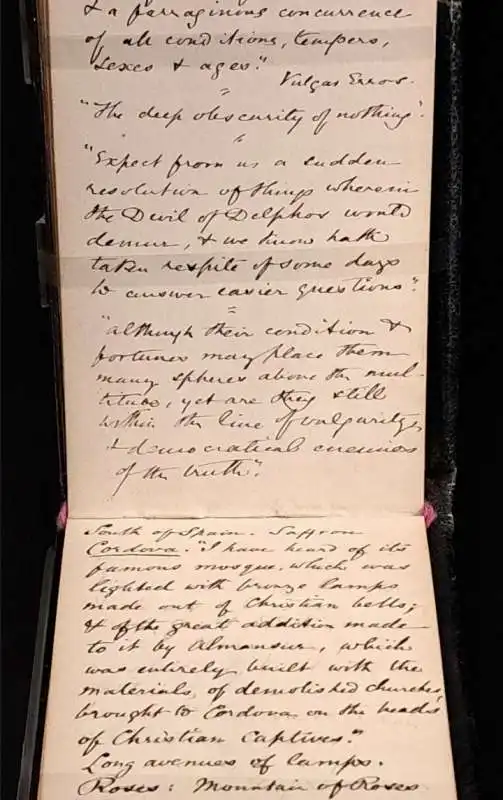 & a farraginous concurrence
of all conditions, tempers,
sexes & ages."
Vulgar Errors.
"The deep obscurity of nothing".
"Expect from us a sudden
resolution of things wherein
the Devil of Delphos would
demur, & we know hath
taken respite of some days
to answer easier questions".
"although their condition &
fortunes may place them
many spheres above the mul-
titude, yet are they still
within the line of vulgarity,
& democratical enemies
of the truth".
South of Spain. Saffron
Cordova. "I have heard of its
famous mosque, which was
lighted with bronze lamps
made out of Christian bells;
& of the great addition made
to it by Almansur, which
was entirely built with the
materials of demolished churches,
brought to Cordova on the heads
of Christian Captives."
Long avenues of lamps.
Roses: Mountain of Roses